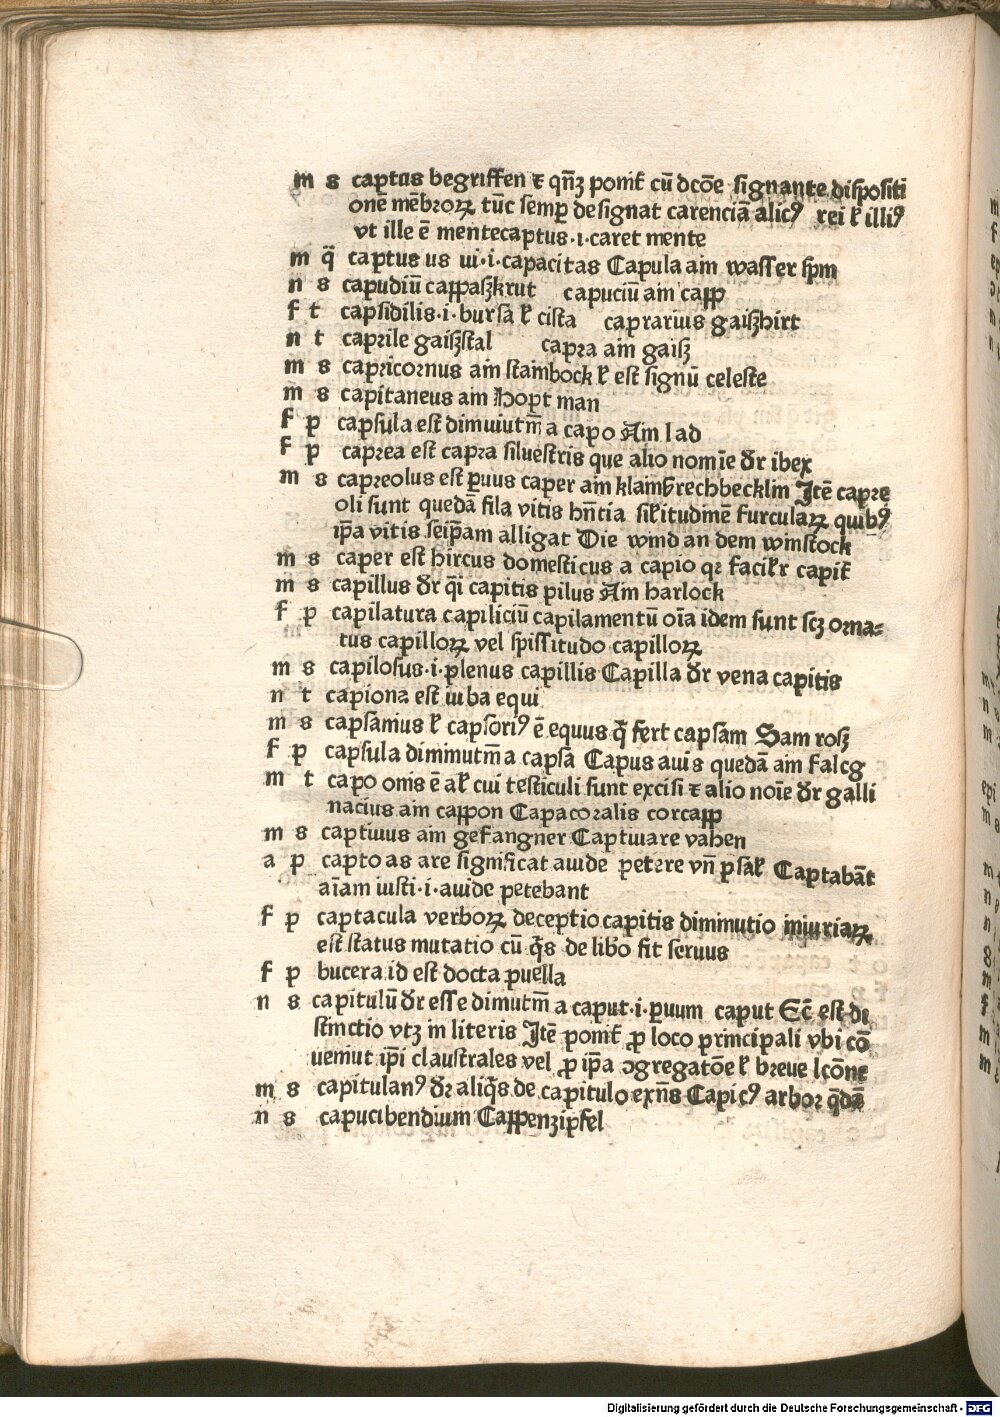 m s captus begriffen ⁊ qn̄ꝫ ponit᷑ cū dcōe signante dispositi
onē mēbroꝝ tūc semꝑ designat carenciā alicꝰ rei ł illiꝰ
vt ille ē mentecaptus·i·caret mente
m q̄ captus us ui·i·capacitas Capula ain wasser spm
n s capudiū cappaßkrut capuciū ain capp
f t capsidilis·i·bursa ł cista caprarius gaißhirt
n t caprile gaißstal capra ain gaiß
m s capricornus ain stainbock ł est signū celeste
m s capitaneus ain Hopt man
f p capsula est diminiutiū a capo Ain lad
f p caprea est capra siluestris que alio nomīe dr̄ ibex
m s capreolus est ꝑuus caper ain klain rechbecklin Itē capre
oli sunt quedā fila vitis hn̄cia sił'itudinē furculaꝝ quibꝰ
ip̄a vitis seip̄am alligat Die wind an dem winstock
m s caper est hircus domesticus a capio qꝛ facił'r capit᷑
m s capillus dr̄ q̄i capitis pilus Ain harlock
f p capilatura capiliciū capilamentū oīa idem sunt scꝫ orna⸗
tus capilloꝝ vel spissitudo capilloꝝ
m s capilosus·i·plenus capillis Capilla dr̄ vena capitis
n t capiona est iuba equi
m s capsarius ł capsoriꝰ ē equus q̄ fert capsam Sam roß
f p capsula diminutiū a capsa Capus auis quedā ain falcg
m t capo onis ē ał cui testiculi sunt excisi ⁊ alio noīe dr̄ galli
nacius ain cappon Capacoralis corcapp
m s captiuus ain gefangner Captiuare vahen
a p capto as are significat auide petere vn̄ psał Captabāt
aīam iusti·i·auide petebant
f p captacula verboꝝ deceptio capitis diminutio iniuriaꝝ
est status mutatio cū q̄s de libo fit seruus
f p bucera id est docta puella
n s capitulū dr̄ esse dimutiū a caput·i·ꝑuum caput Scᷤ est de
stinctio vtꝫ in literis Itē ponit᷑ ꝓ loco principali vbi cō
ueniut ip̄i claustrales vel ꝓ ip̄a ↄgregatōe ł breue lcōne
m s capitulanꝰ dr̄ aliq̄s de capitulo exn̄s Capicꝰ arbor q̄dā
n s capucibendium Cappenzipfel
Digitalisierung gefördert durch die Deutsche Forschungsgemeinschaft - DFG